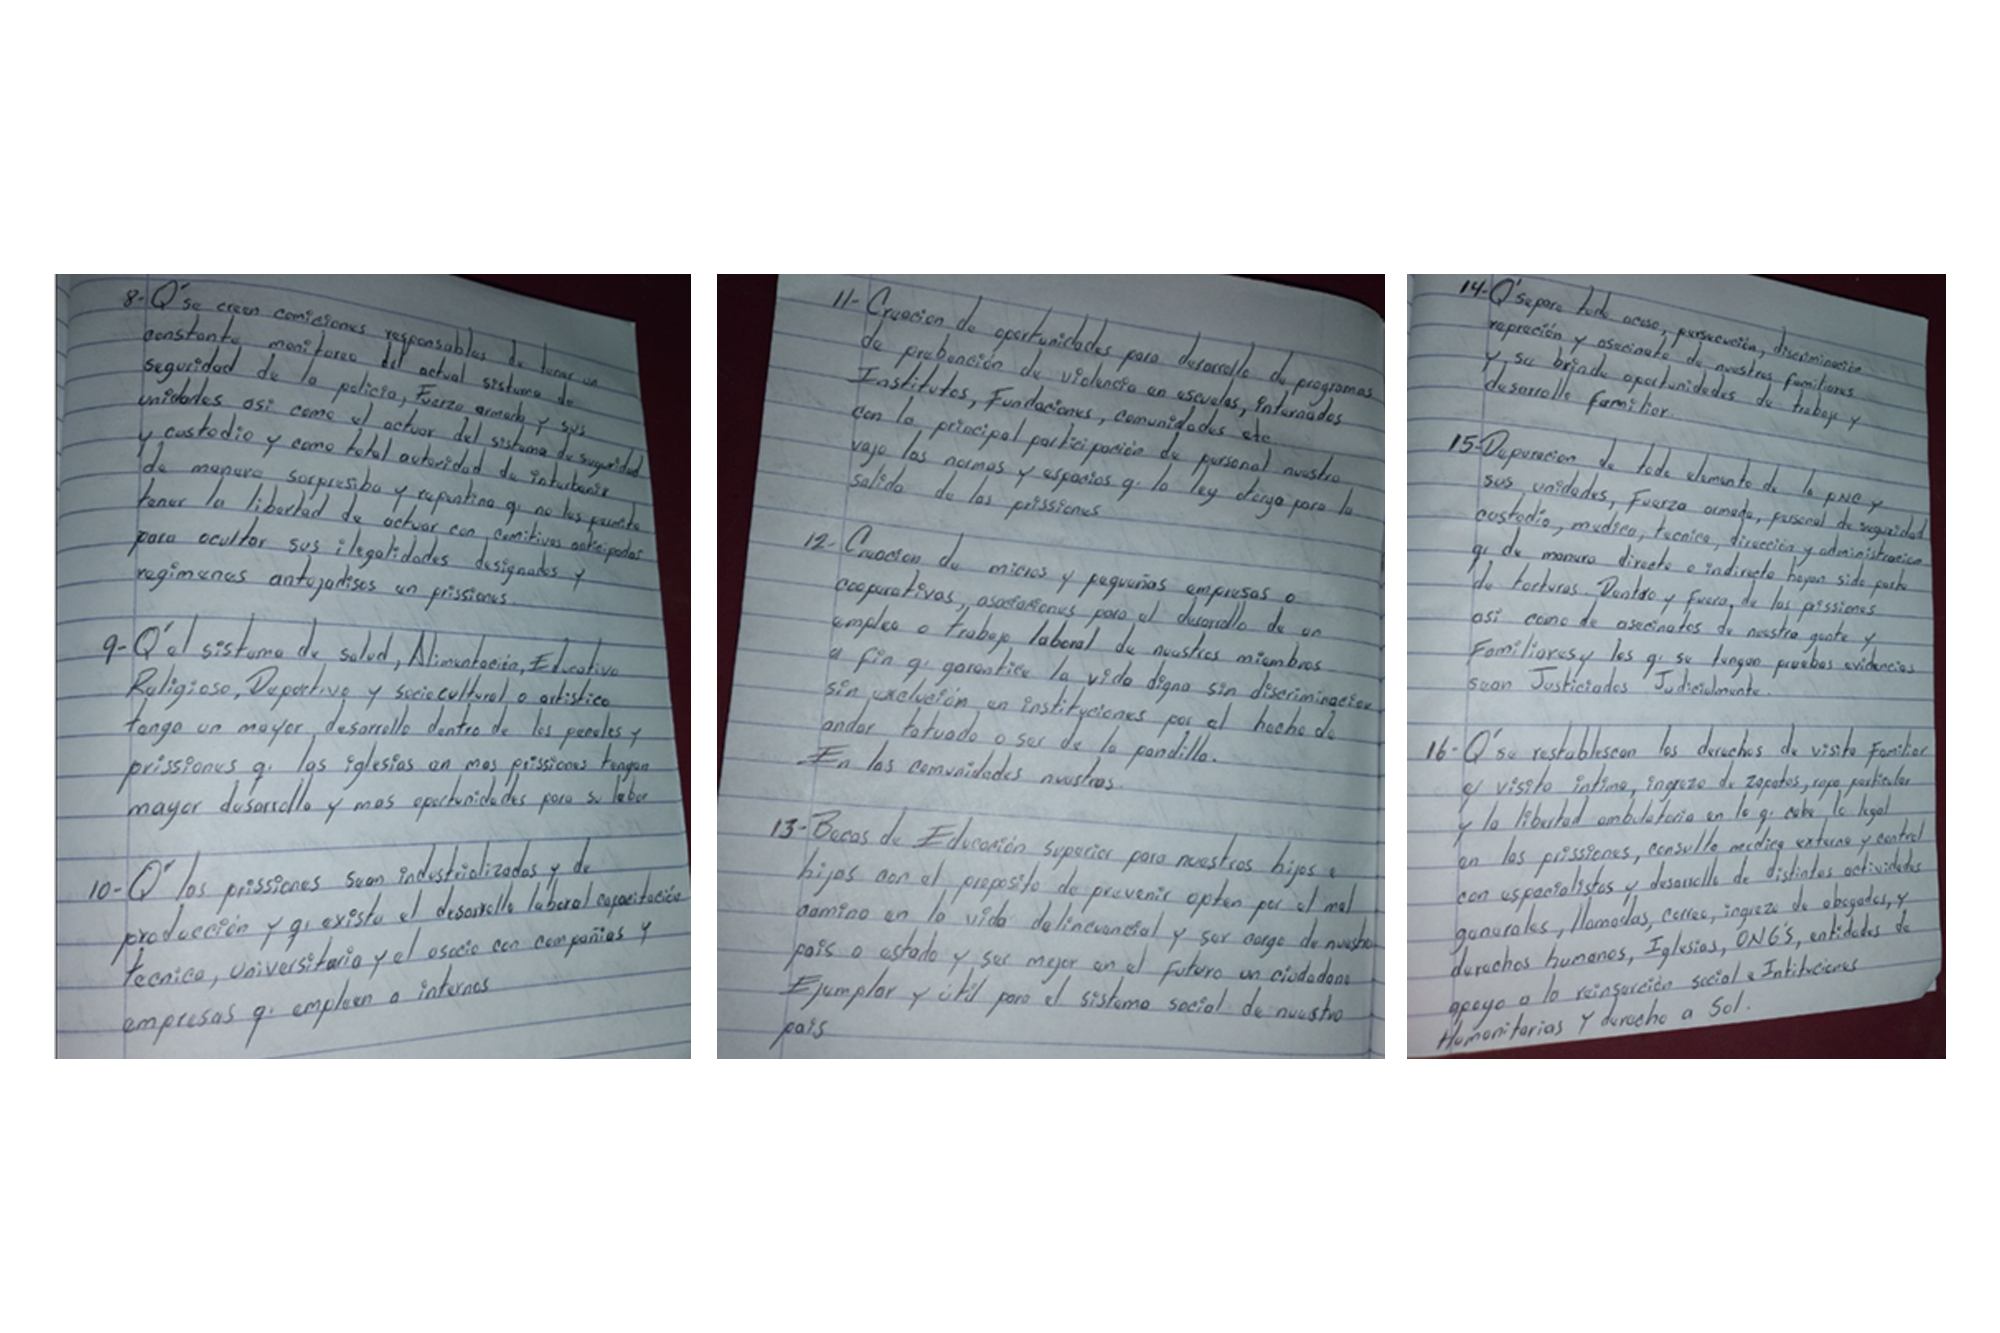 8- Q' se creen comiciones responsables de tener un
constante monitoreo del actual sistema de
seguridad de la policia, Fuerza armada y sus
unidades asi como el actuar del sistema de seguridad
y custodio y como total autoridad de interbenir
de manera sorpresiba y repentina q. no les permita
tener la libertad de actuar con comitivas anticipadas
para ocultar sus ilegalidades designados y
regimenes antojadisos en prissiones.
9- Q' el sistema de salud, Alimentación, Educativo
Religioso, Deportivo y sociocultural o artistico
tenga un mayor desarrollo dentro de los penales y
prissiones q. las iglesias en mas prissiones tengan
mayor desarrollo y mas oportunidades para su labor
10- Q' las prissiones sean industrializadas y de
producción y q. exista el desarrollo laboral capacitación
tecnica, universitaria y el asocio con compañias y
empresas q. empleen a internos
11- Creacion de oportunidades para desarrollo de programas
de prebención de violencia en escuelas, internados
Institutos, Fundaciones, comunidades etc
con la principal participación de personal nuestro
vajo las normas y espacios q. la ley otorga para la
salida de las prissiones
12- Creacion de micros y pequeñas empresas o
cooperativas, asociaciones para el desarrollo de un
empleo o trabajo laboral de nuestros miembros
a fin q. garantice la vida digna sin discriminacion
sin exclución en instituciones por el hecho de
andar tatuado o ser de la pandilla.
En las comunidades nuestras.
13- Becas de Educación superior para nuestros hijos e
hijas con el proposito de prevenir opten por el mal
camino en la vida delincuencial y ser carga de nuestro
pais o estado y ser mejor en el futuro un ciudadano
Ejemplar y útil para el sistema social de nuestro
pais
14- Q' se pare todo acoso, persecución, discriminación
repreción y asecinato de nuestros familiares
y se brinde oportunidades de trabajo y
desarrollo familiar.
15- Depuracion de todo elemento de la PNC y
sus unidades, Fuerza armada, personal de seguridad
custodio, medico, tecnico, dirección y administración
q. de manera directa o indirecta hayan sido parte
de torturas. Dentro y fuera, de las pissiones
asi como de asecinatos de nuestra gente y
Familiares y los q. se tengan pruebas evidencias
sean Justiciados Judicialmente.
16- Q' se restablescan los derechos de visita Familiar
y visita intima, ingrezo de zapatos, ropa particular
y la libertad ambulatoria en lo q. cabe lo legal
en las prissiones, consulta medica externa y control
con espacialistas y desarrollo de distintas actividades
generales, llamadas, correo, ingrezo de abogados, y
derechos humanos, Iglesias, ONG'S, entidades de
apoyo a la reinserción social e Intituciones
Humanitarias y derecho a Sol.